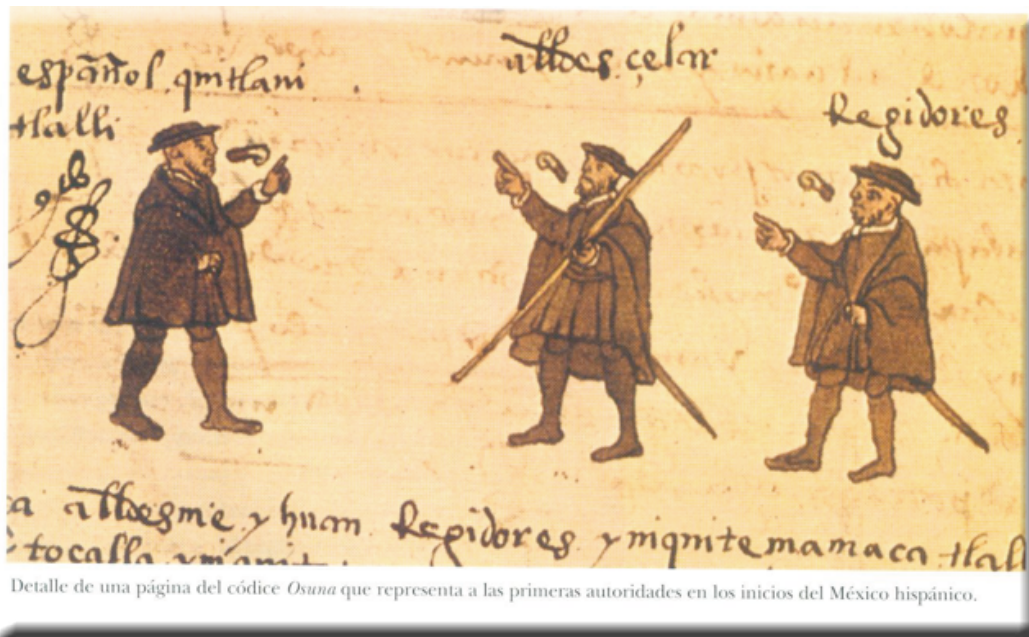 español. quitlani
tlalli
alldes çelar
Regidores
ca alldesme. yhuan. Regidores. yniquitemamaca tlall
tocalla
Detalle de una página del códice Osuna que representa a las primeras autoridades en los inicios del México hispánico.